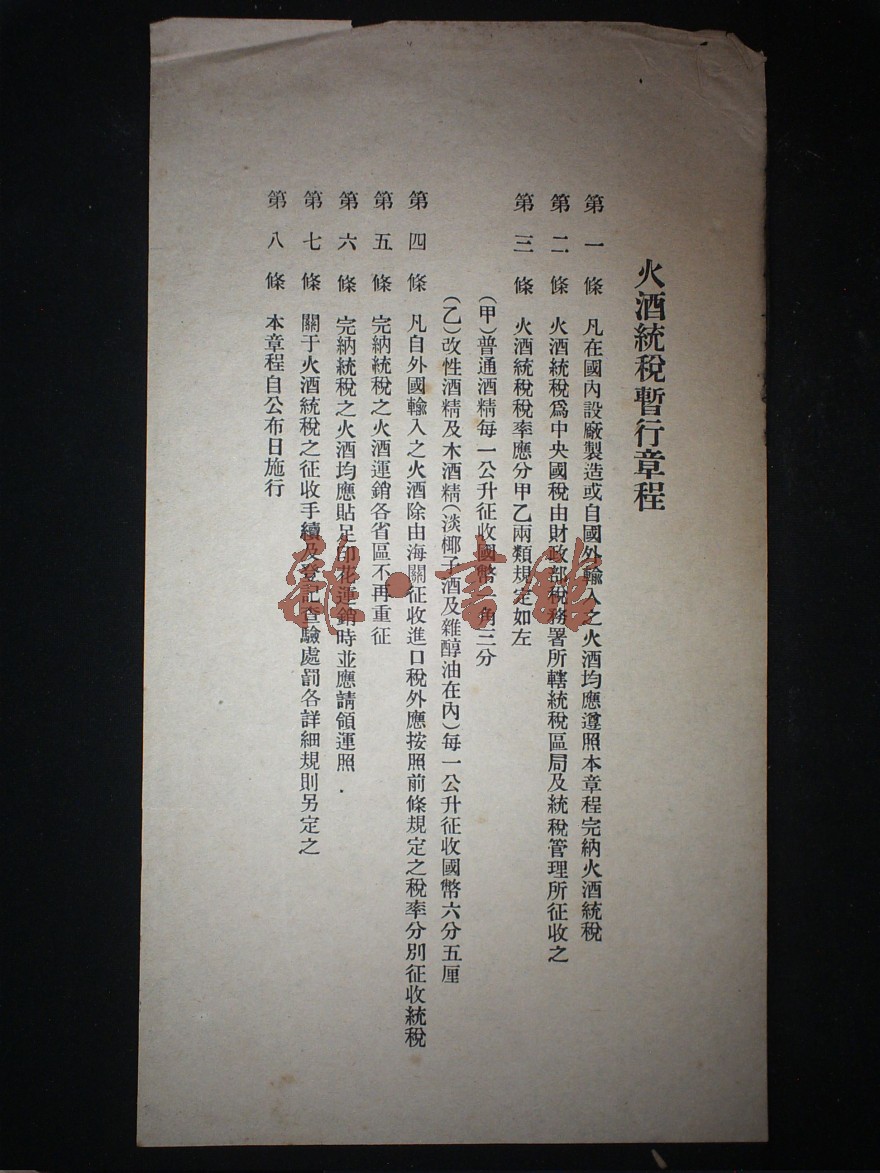 火酒統稅暫行章程
第一條 凡在國內設廠製造或自國外輸入之火酒均應遵照本章程完納火酒統稅
第二條 火酒統稅爲中央國稅由財政部稅務署所轄統稅區局及統稅管理所征收之
第三條 火酒統稅稅率應分甲乙兩類規定如左
(甲)普通酒精每一公升征收國幣一角三分
(乙)改性酒精及木酒精(淡椰子酒及雜醇油在內)每一公升征收國幣六分五厘
第四條 凡自外國輸入之火酒除由海關征收進口稅外應按照前條規定之稅率分別征收統稅
第五條 完納統稅之火酒運銷各省區不再重征
第六條 完納統稅之火酒均應貼足印花運銷時並應請領運照
第七條 關于火酒統稅之征收手續及登記查驗處罰各詳細規則另定之
第八條 本章程自公布日施行
雜·書館